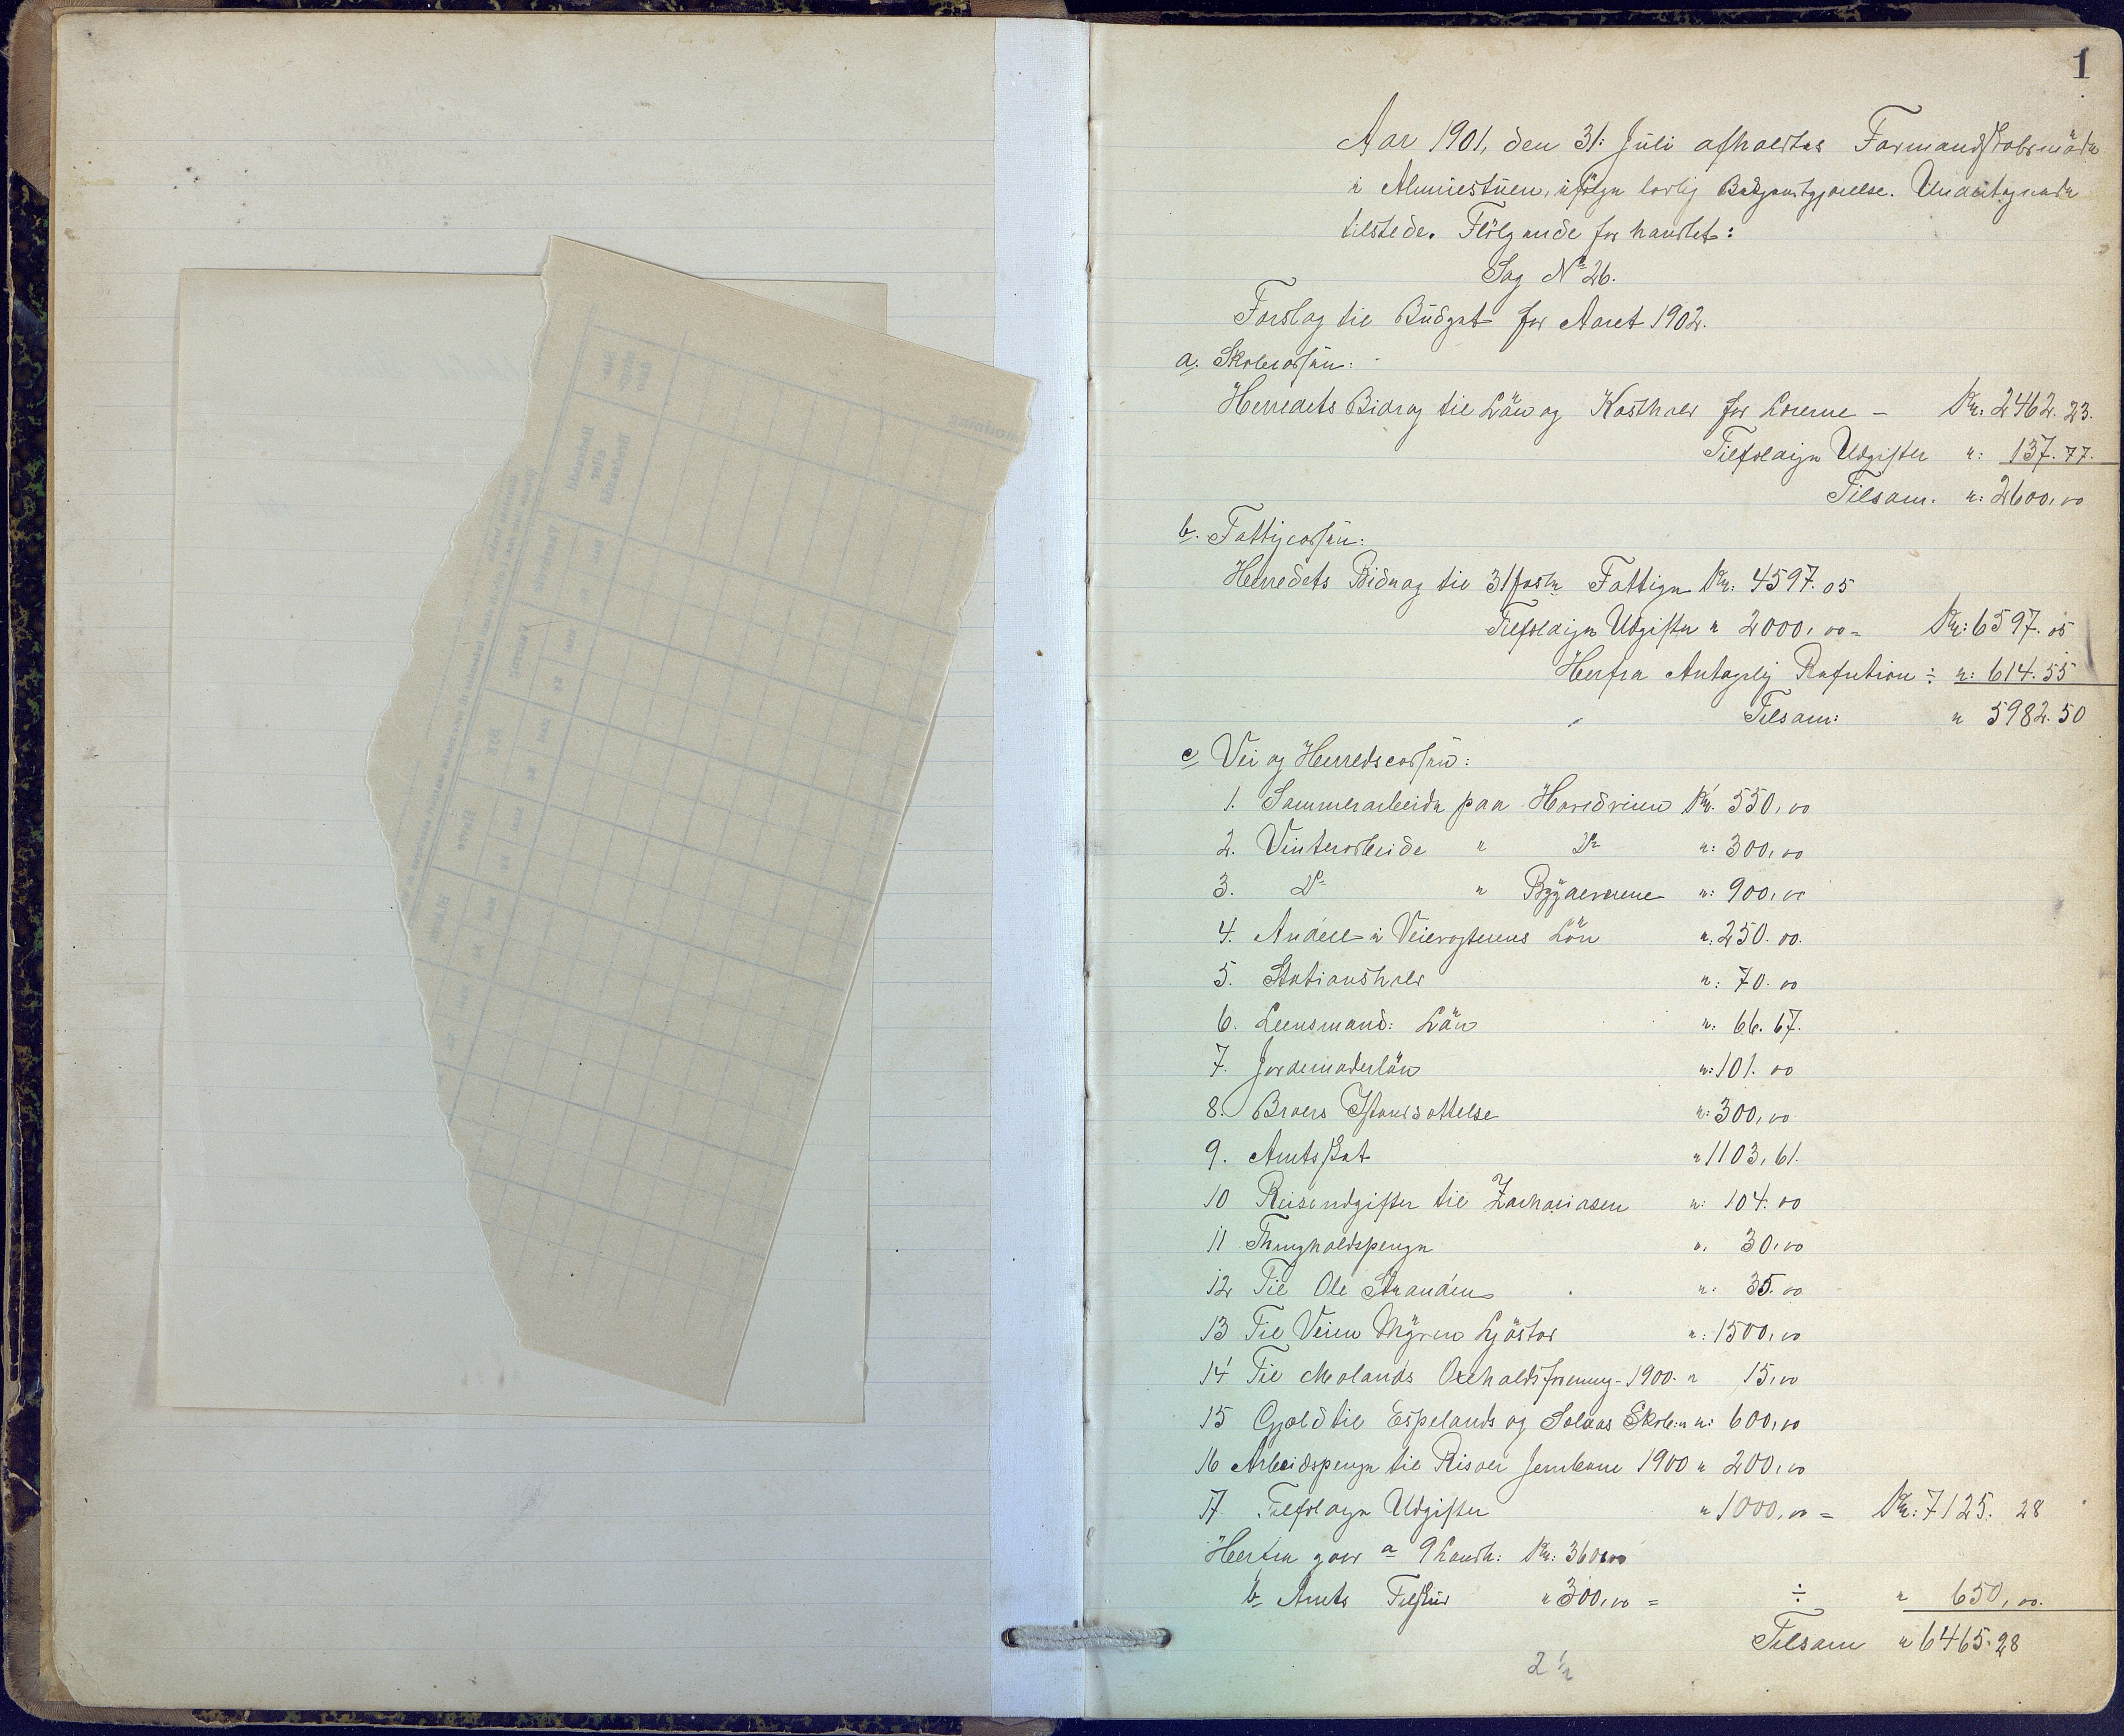 1
Aar 1901, den 31: Juli afholdtes Formandskabsmöde
i Almuestuen, ifölge lovlig Bekjendtgjörelse. Undertegnede
tilstede. Fölgende forhandlet:
Sag No 26.
Forslag til Budget for Aaret 1902.
a. Skolecassen:
Herredets Bidrag til Lön og Kosthold for Lærerne - Kr: 2462. 23.
Tilfældige Udgifter ": 137. 77.
Tilsam. ": 2600,00
b. Fattigcassen:
Herredets Bidrag til 31 faste Fattige Kr: 4597. 05
Tilfældige Udgifter " 2000,00 = Kr: 6597. 05
Herfra Antagelig Refution ÷ ": 614. 55
Tilsam: " 5982. 50
c Vei og Herredscassen:
1. Sommerarbeide paa Hovedveien Kr. 550,00
2. Vinterarbeide " Do ": 300,00
3. Do " Bygdeveiene ": 900,00
4. Andel i Veivogterens Lön ": 250. 00.
5. Stationshold ": 70. 00
6. Lensmand: Lön ": 66. 67.
7. Jordemoderlön ": 101. 00
8. Broers Istandsættelse ": 300,00
9. Amtsskat " 1103,61.
10 Reiseudgifter til Zachariasen ": 104. 00
11 Thingholdspenge ". 30,00
12 Til Ole Stranden ": 35. 00
13 Til Veien Myren Ljöstad ": 1500,00
14 Til Molands Oxeholdsforening - 1900. " 15,00
15 Gjæld til Espelands og Solaas Skole: " ": 600,00
16 Arbeidspenge til Risøer 1900 " 200,00
17. Tilfældige Udgifter " 1000,00 = Kr: 7125. 28
Herfra gaar a 9 Landh: Kr: 360,00
b Amts Tilskud " 300,00 = ÷ " 650,00.
Tilsam " 6465. 28
2 1/2